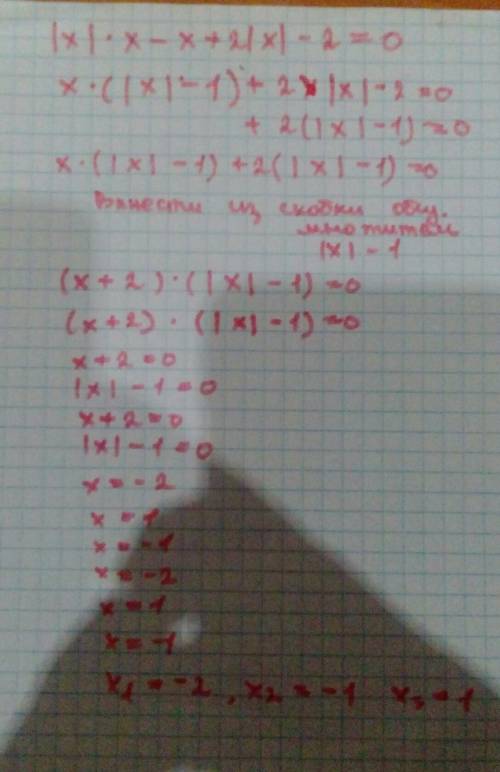 |x| · x - x + 2|x| - 2 = 0
x · (|x| - 1) + 2 |x| - 2 = 0
+ 2(|x| - 1) = 0
x · (|x| - 1) + 2(|x| - 1) = 0
Вынести из скобки общ.
множители
|x| - 1
(x + 2) · (|x| - 1) = 0
(x+2) · (|x| - 1) = 0
x + 2 = 0
|x| - 1 = 0
x + 2 = 0
|x| - 1 = 0
x = -2
x = 1
x = -1
x = -2
x = 1
x = -1
x1 = -2, x2 = -1 x3 = 1